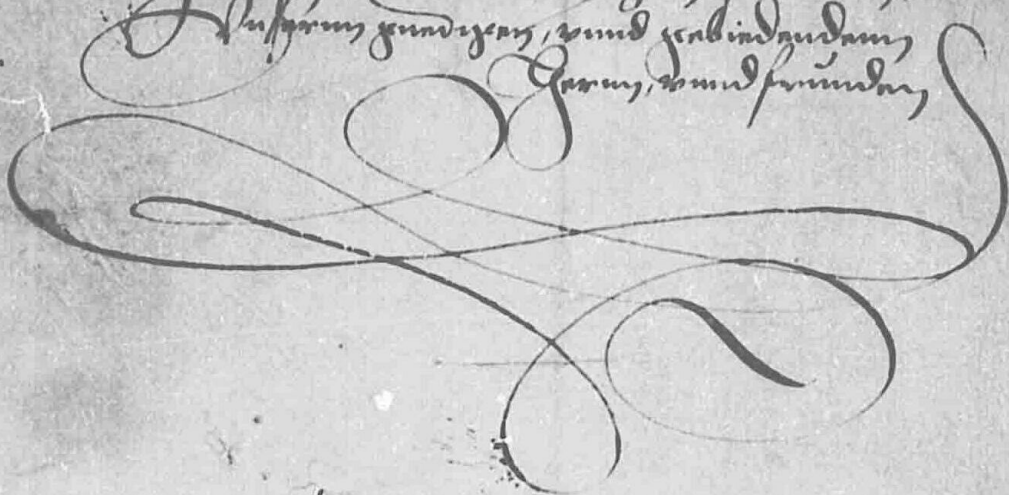 Unsernn gnedigen, vnnd gebiedendenn
Hernn, vnnd frunden